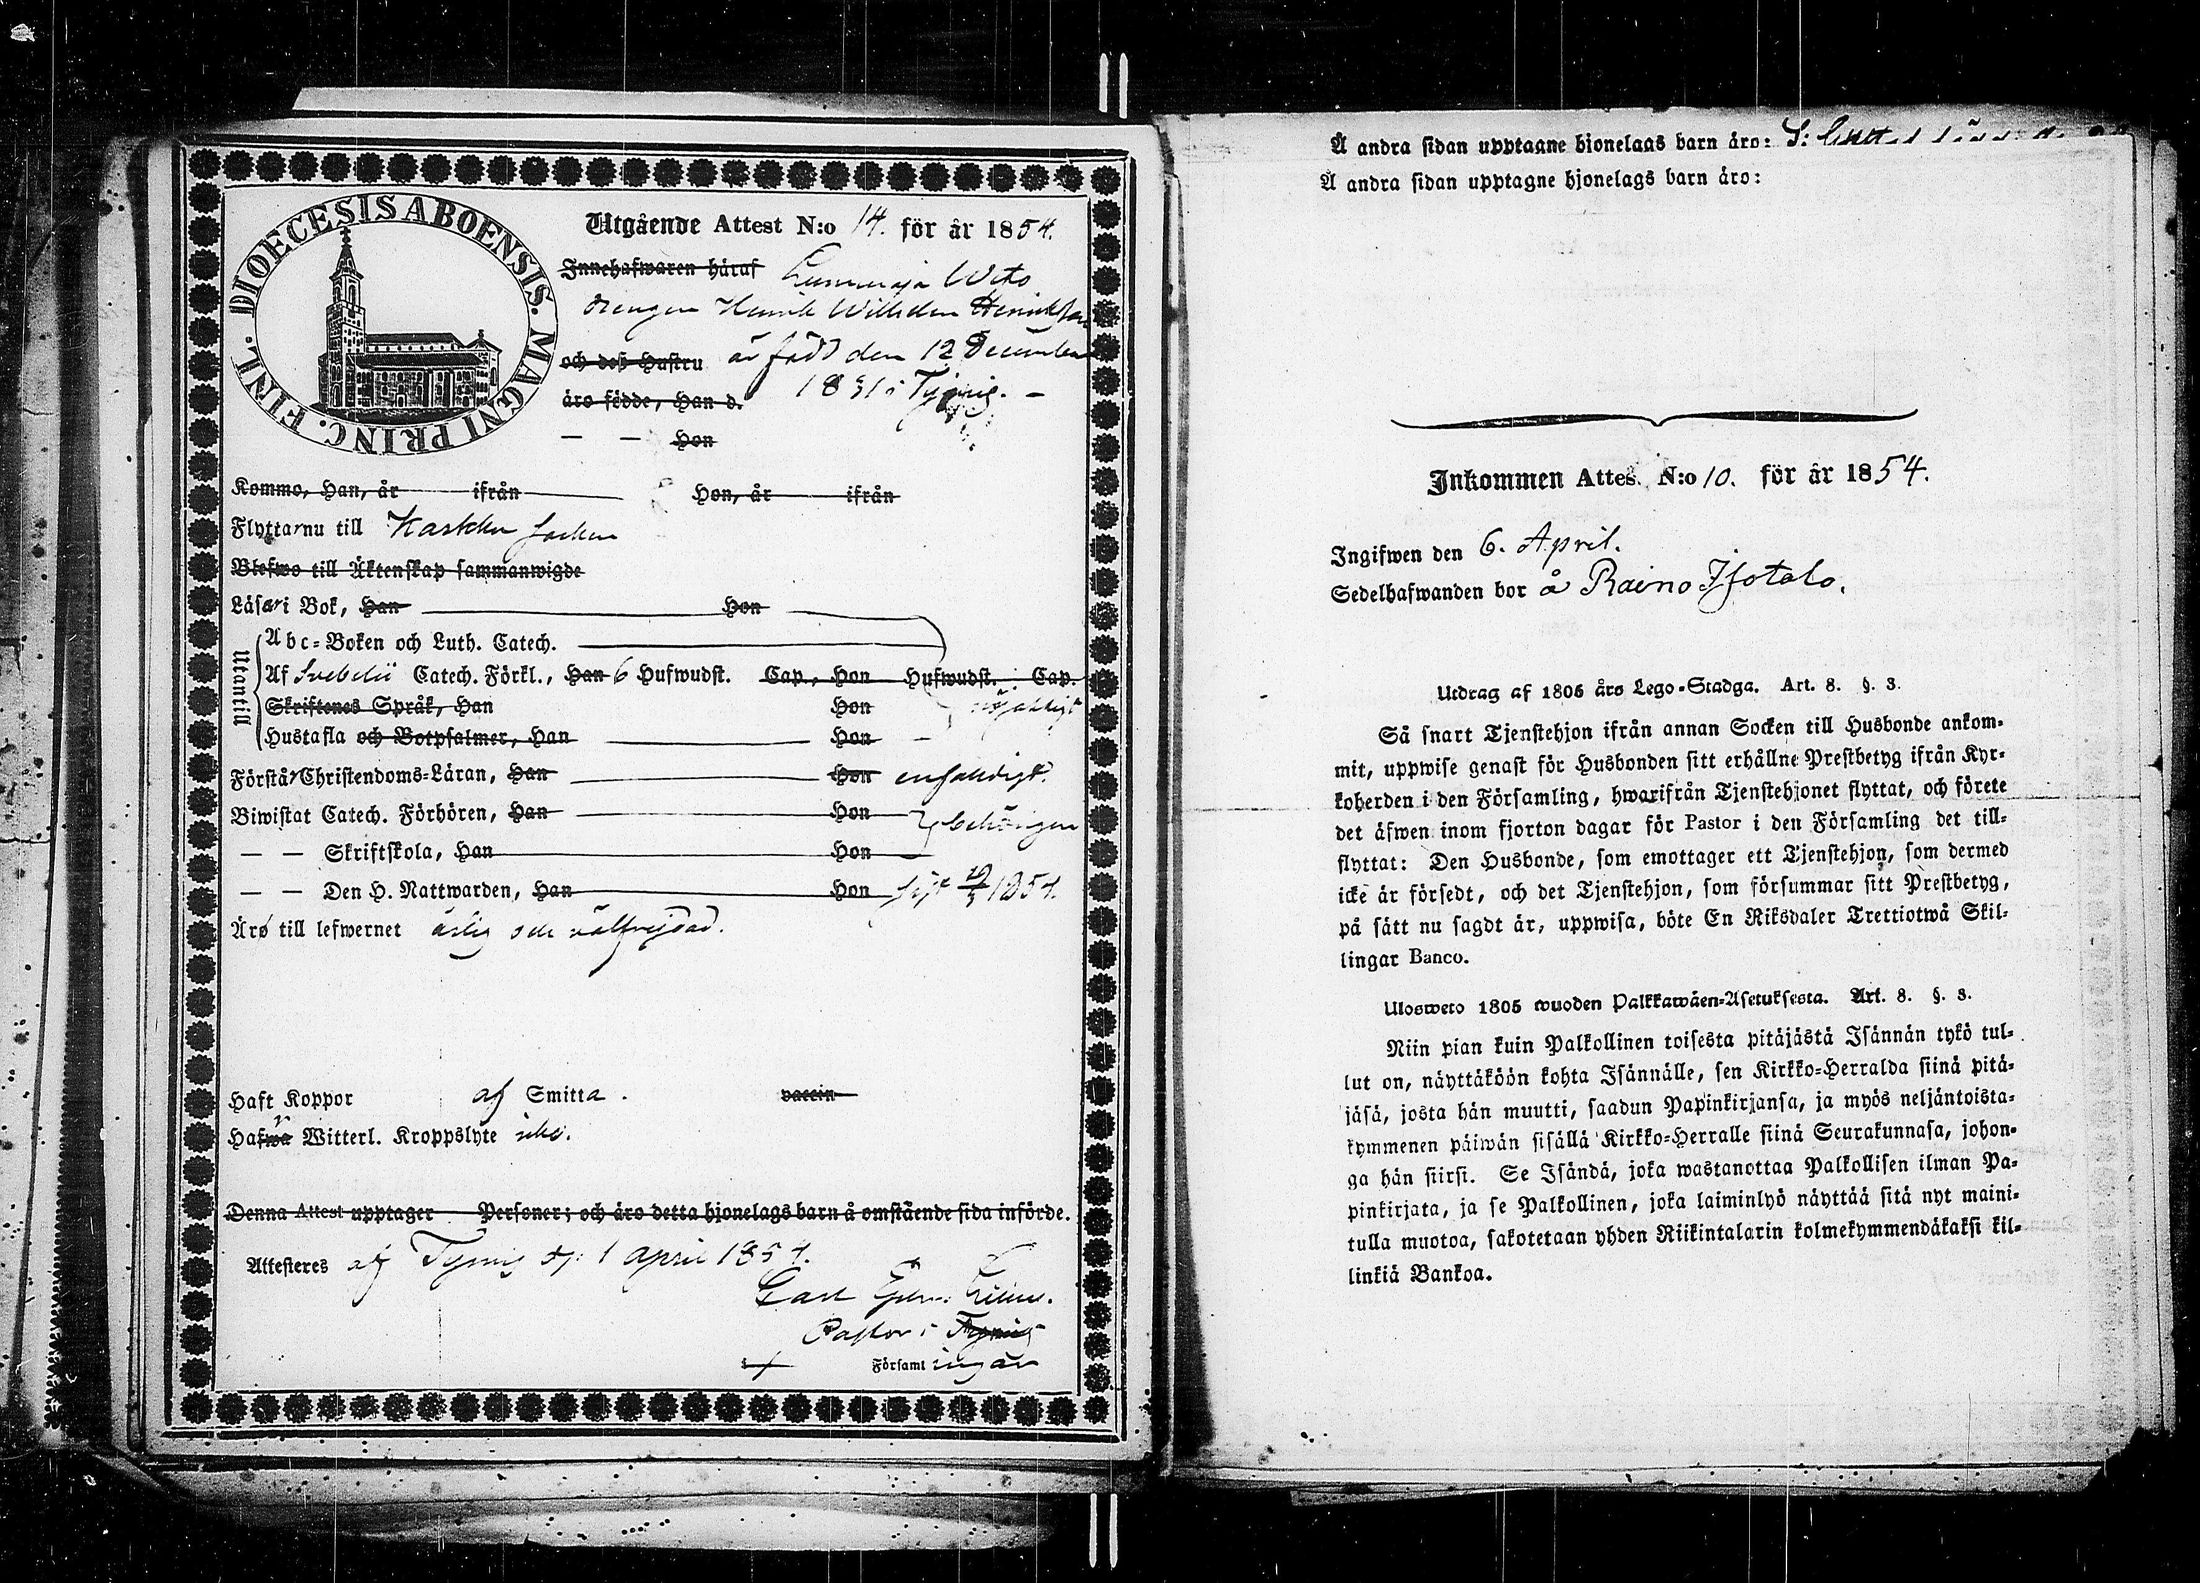 DIOECESIS ABOENSIS. MAGNI PRINC. FINL.
Utgående Attest N:o 14. för år 1854.
Innehafwaren häraf
drengen Henrik Wilhelm Henriksson
och deß Hustru är född den 12 December
äro födde, Han d. 1831 i Tyrvis. –
— — Hon
Komme, Han, år ifrån Hon, år ifrån
Flyttar nu till Karkku socken
Blefwo till Äktenskap sammanwigde
Läser i Bok, Han Hon
Utantill
Abc-Boken och Luth. Catech.
Af Svebelii Catech. Förkl., Han 6 Hufwudst. Cap., Hon Hufwudst. Cap.
Skriftenes Språk, Han Hon nöjaktigt
Hustafla och Botpsalmer, Han Hon
Förstår Christendoms-Läran, Han Hon enfaldigt.
Biwistat Catech. Förhören, Han Hon behörigen
— — Skriftskola, Han Hon
— — Den H. Nattwarden, Han Hon sist 19/3 1854.
Äro till lefwernet ärlig och välfrejdad.
Haft Koppor af Smitta. vaccin
Hafwa Witterl. Kroppslyte icke.
Denna Attest upptager Personer; och äro detta hjonelags barn å omstående sida införde.
Attesteres af Tyrvis d. 1 april 1854.
Carl
Pastor i Tyrvis
Församlingar
Å andra sidan upptagne hjonelags barn äro:
Å andra sidan upptagne hjonelags barn äro:
Inkommen Attes. N:o 10. för år 1854.
Ingifwen den 6. April.
Sedelhafwanden bor å Raino Isotalo.
Utdrag af 1805 års Lego-Stadga. Art. 8. §. 3.
Så snart Tjenstehjon ifrån annan Socken till Husbonde ankom-
mit, uppwise genast för Husbonden sitt erhållne Prestbetyg ifrån Kyr-
koherden i den Församling, hwarifrån Tjenstehjonet flyttat, och förete
det äfwen inom fjorton dagar för Pastor i den Församling det till-
flyttat: Den Husbonde, som emottager ett Tjenstehjon, som dermed
icke är försedt, och det Tjenstehjon, som försummar sitt Prestbetyg,
på sätt nu sagdt är, uppwisa, böte En Riksdaler Trettiotwå Skil-
lingar Banco.
Ulosweto 1805 wuoden Palkkawäen-Asetuksesta. Art. 8. §. 3.
Niin pian kuin Palkollinen toisesta pitäjästä Isännän tykö tul-
lut on, näyttäköön kohta Isännälle, sen Kirkko-Herralda siinä pitä-
jäsä, josta hän muutti, saadun Papinkirjansa, ja myös neljäntoista-
kymmenen päiwän sisällä Kirkko-Herralle siinä Seurakunnasa, johon-
ga hän siirsi. Se Isändä, joka wastanottaa Palkollisen ilman Pa-
pinkirjata, ja se Palkollinen, joka laiminlyö näyttää sitä nyt maini-
tulla muotoa, sakotetaan yhden Riikintalarin kolmekymmendäkaksi kil-
linkiä Bankoa.